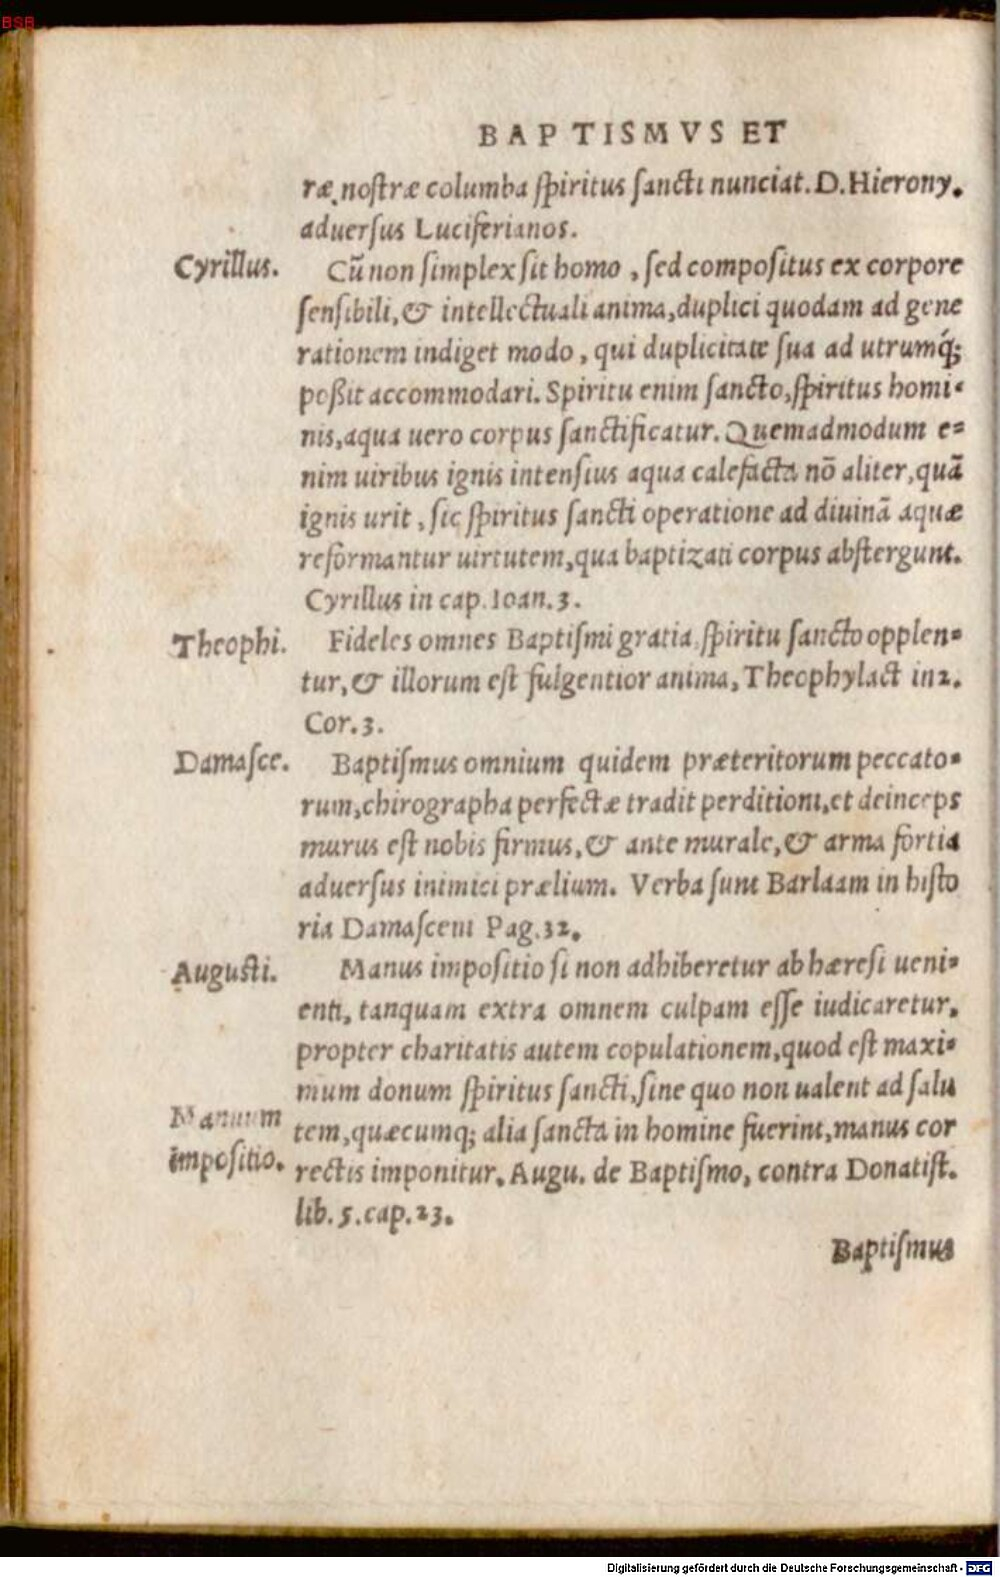 BSB
BAPTISMVS ET
ræ nostræ columba spiritus sancti nunciat. D. Hierony.
aduersus Luciferianos.
Cyrillus.
Cũ non simplex sit homo, sed compositus ex corpore
sensibili, & intellectuali anima, duplici quodam ad gene
rationem indiget modo, qui duplicitate sua ad utrumq́;
poßit accommodari. Spiritu enim sancto, spiritus homi-
nis, aqua uero corpus sanctificatur. Quemadmodum e=
nim uiribus ignis intensius aqua calefacta nõ aliter, quã
ignis urit, sic spiritus sancti operatione ad diuinã aquæ
reformantur uirtutem, qua baptizati corpus abstergunt.
Cyrillus in cap. Ioan. 3.
Theophi.
Fideles omnes Baptismi gratia, spiritu sancto opplen=
tur, & illorum est fulgentior anima, Theophylact in 2.
Cor. 3.
Damasce.
Baptismus omnium quidem præteritorum peccato=
rum, chirographa perfectæ tradit perditioni, et deinceps
murus est nobis firmus, & ante murale, & arma fortia
aduersus inimici prælium. Verba sunt Barlaam in histo
ria Damasceni Pag. 32.
Augusti.
Manus impositio si non adhiberetur ab hæresi ueni=
enti, tanquam extra omnem culpam esse iudicaretur,
propter charitatis autem copulationem, quod est maxi=
mum donum spiritus sancti, sine quo non ualent ad salu
Manuum
tem, quæcumq; alia sancta in homine fuerint, manus cor
impositio.
rectis imponitur. Augu. de Baptismo, contra Donatist.
lib. 5. cap. 23.
Baptismus
Digitalisierung gefördert durch die Deutsche Forschungsgemeinschaft - DFG